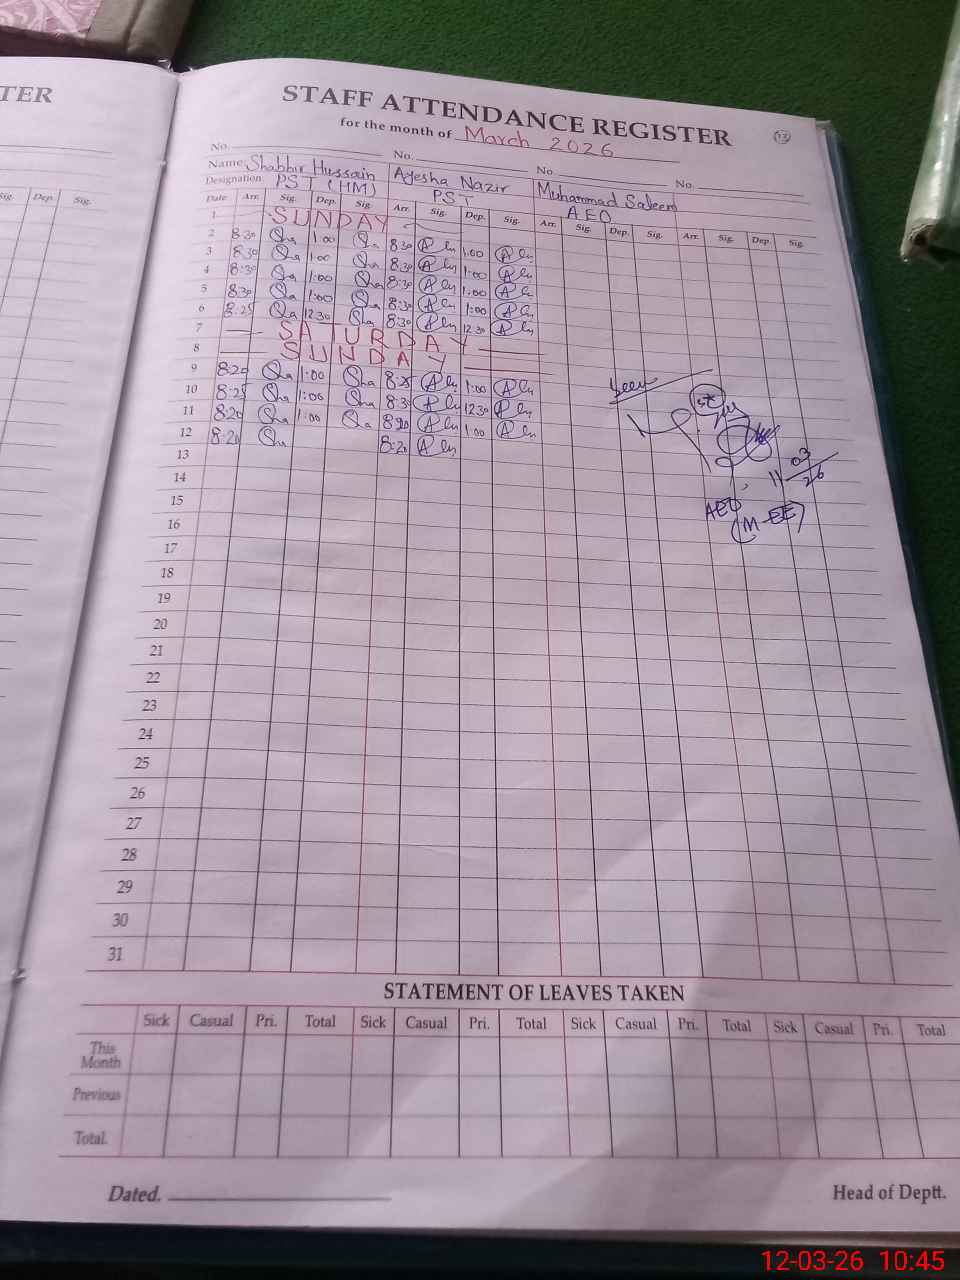 TER
Sig.
Dep.
Sig.
STAFF ATTENDANCE REGISTER
13
for the month of March 2026
No. No. No. No.
Name Shabbir Hussain Ayesha Nazir Muhammad Saleem
Designation PST (HM) PST AEO
Date Arr. Sig. Dep. Sig. Arr. Sig. Dep. Sig. Arr. Sig. Dep. Sig. Arr. Sig. Dep. Sig.
1 SUNDAY
2 8:30 Sha 1:00 8:30 1:00
3 8:30 1:00 Sha 8:30 1:00
4 8:30 1:00 Sha 8:30 1:00
5 8:30 1:00 Sha 8:30 1:00
6 8:25 12:30 Sha 8:30 12:30
7 SATURDAY
8 SUNDAY
9 8:20 Sha 1:00 Sha 8:25 1:00
10 8:25 Sha 1:00 Sha 8:30 12:30
11 8:20 Sha 1:00 8:20 1:00
12 8:20 8:20
Seen
11 03/26
AEO
(M-EE)
13
14
15
16
17
18
19
20
21
22
23
24
25
26
27
28
29
30
31
STATEMENT OF LEAVES TAKEN
Sick Casual Pri. Total Sick Casual Pri. Total Sick Casual Pri. Total Sick Casual Pri. Total
This Month
Previous
Total.
Dated.
Head of Deptt.
12-03-26 10:45